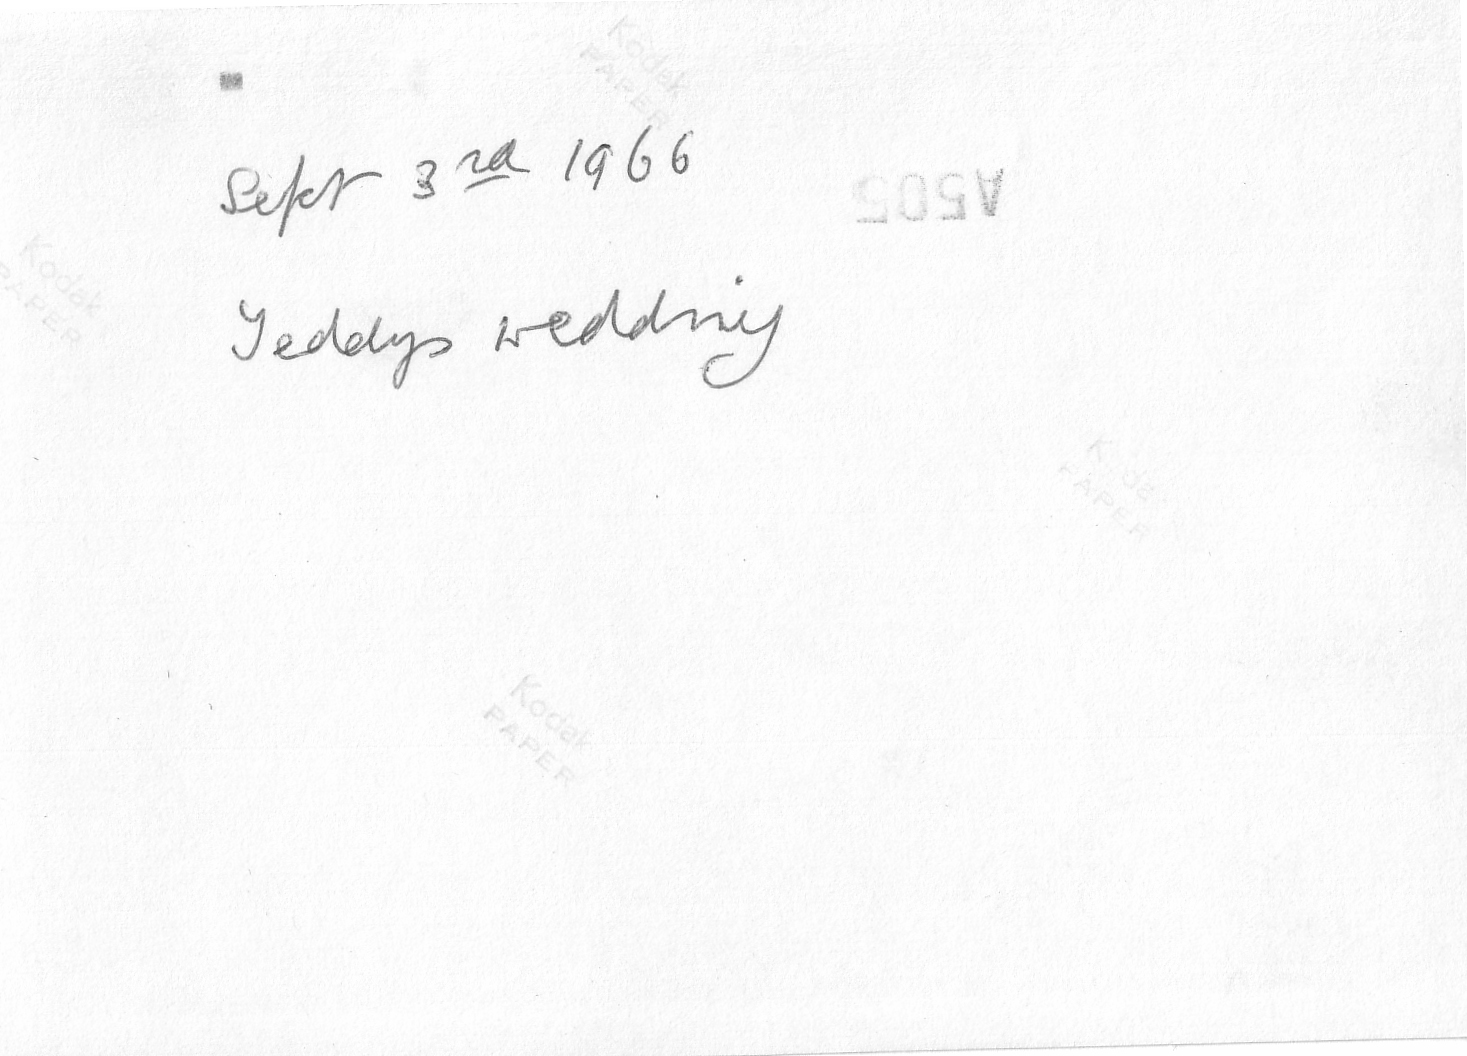 Kodak
PAPER
Sept 3rd 1966
A505
Kodak
PAPER
Teddys wedding
Koda
PAPER
Kodak
PAPER